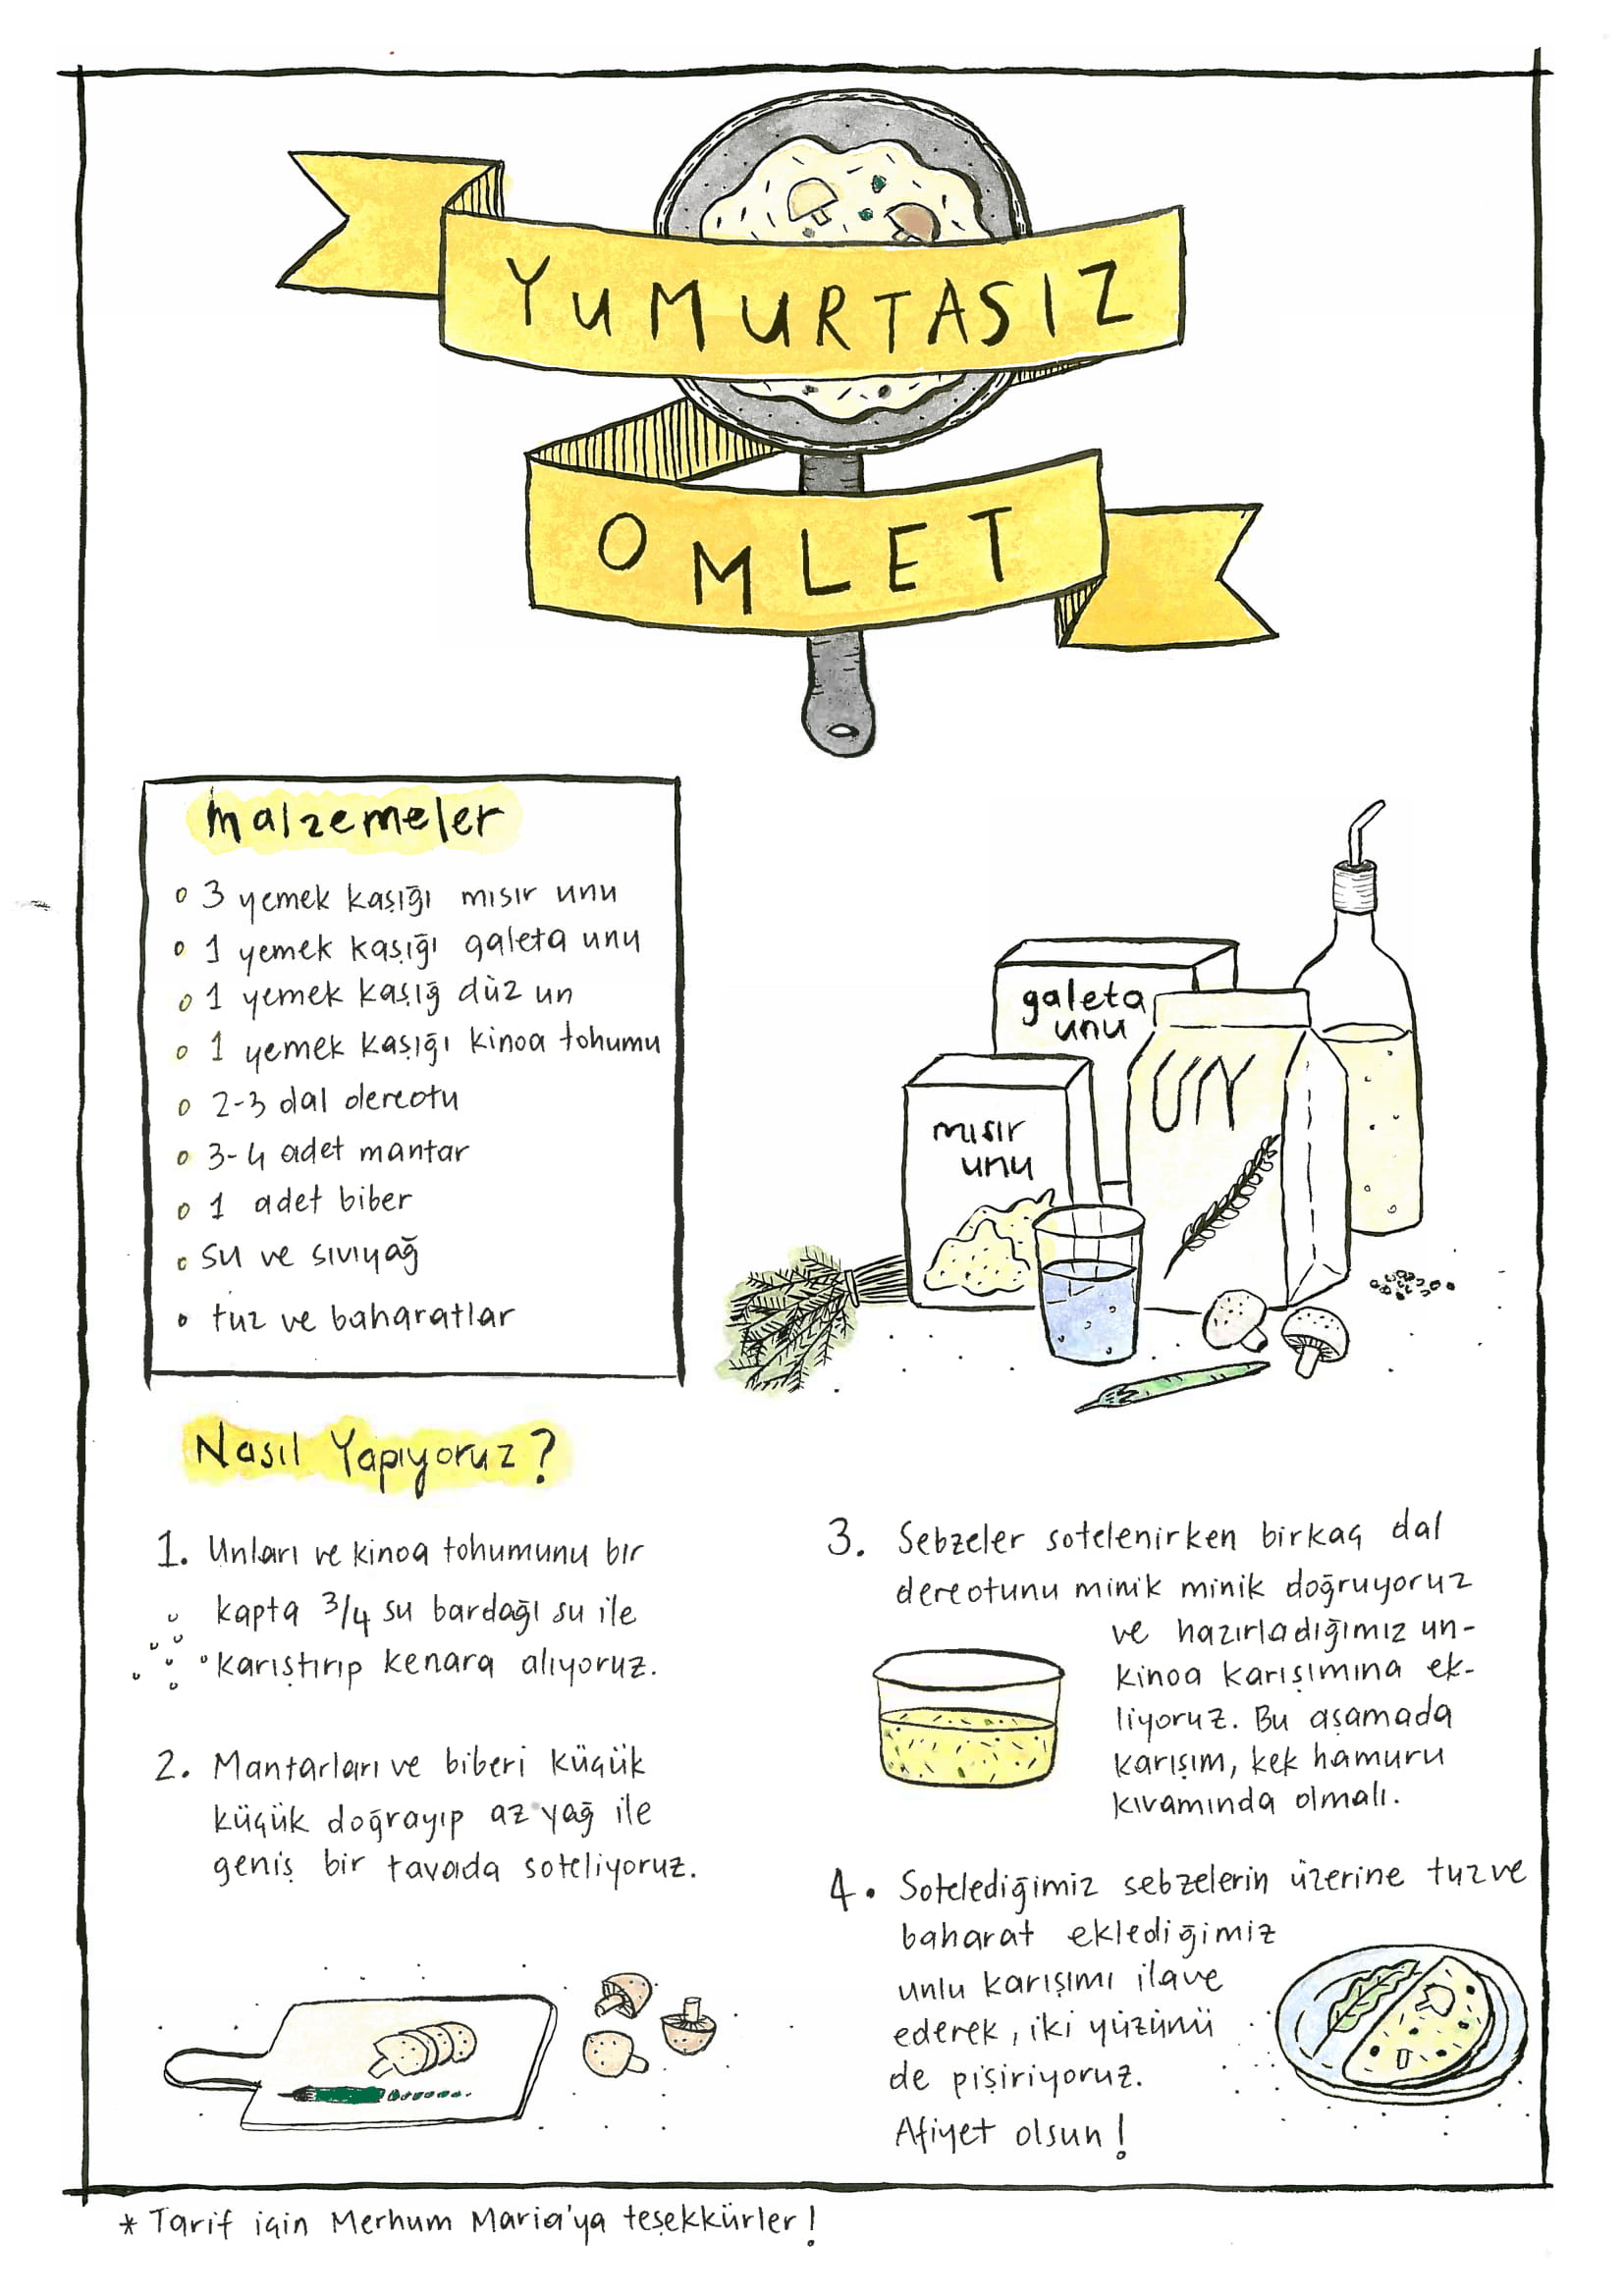 YUMURTASIZ
OMLET
malzemeler
o 3 yemek kaşığı mısır unu
o 1 yemek kaşığı galeta unu
o 1 yemek kaşığ düz un
o 1 yemek kaşığı kinoa tohumu
o 2-3 dal dereotu
o 3-4 adet mantar
o 1 adet biber
o su ve sıvıyağ
• tuz ve baharatlar
galeta
unu
UN
mısır
unu
Nasıl Yapıyoruz?
1. Unları ve kinoa tohumunu bir
kapta 3/4 su bardağı su ile
karıştırıp kenara alıyoruz.
2. Mantarları ve biberi küçük
küçük doğrayıp az yağ ile
geniş bir tavada soteliyoruz.
3. Sebzeler sotelenirken birkaç dal
dereotunu minik minik doğruyoruz
ve hazırladığımız un-
kinoa karışımına ek-
liyoruz. Bu aşamada
karışım, kek hamuru
kıvamında olmalı.
4. Sotelediğimiz sebzelerin üzerine tuz ve
baharat eklediğimiz
unlu karışımı ilave
ederek, iki yüzünü
de pişiriyoruz.
Afiyet olsun!
* Tarif için Merhum Maria'ya teşekkürler!